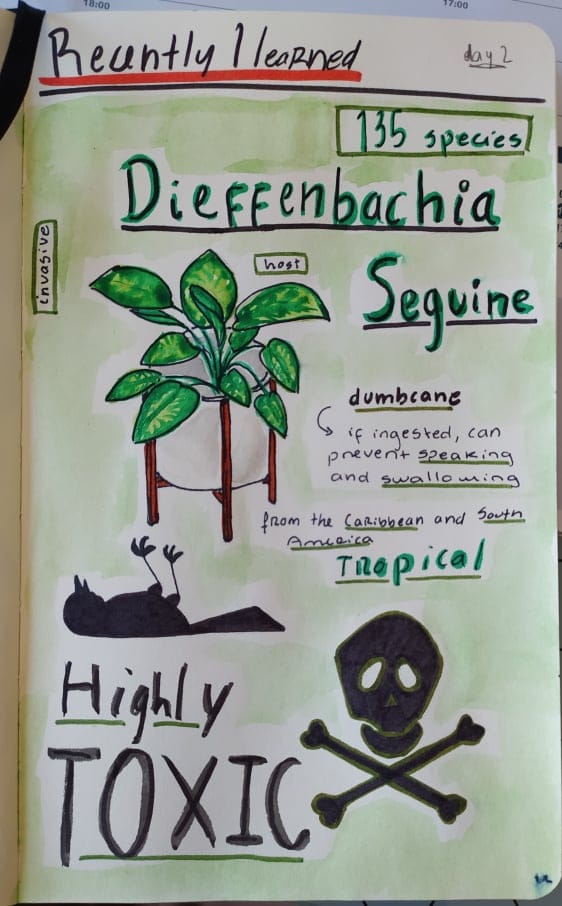 18:00
17:00
Recently I learned
day 2
135 species
Dieffenbachia
Seguine
invasive
host
dumbcane
if ingested, can
prevent speaking
and swallowing
from the Caribbean and South
America
Tropical
Highly
TOXIC